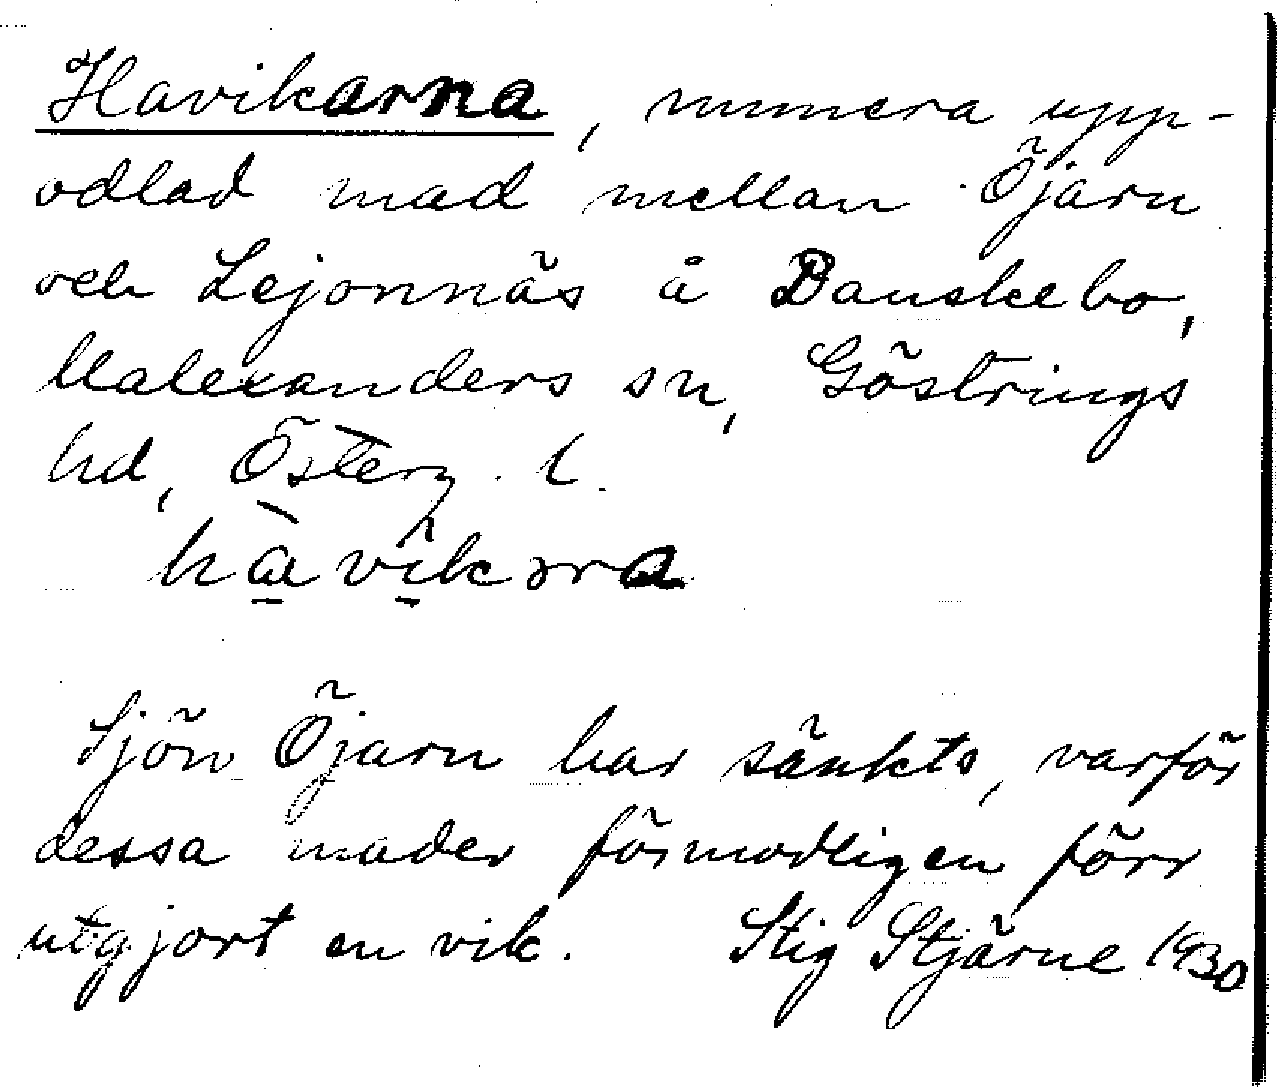 Havikarna, numera upp-
odlad mad mellan Öjarn
och Lejonnäs å Danskebo,
Malexanders sn, Göstrings
hd, Österg. l.
Sjön Öjarn har sänkts, varför
dessa mader förmodligen förr
utgjort en vik. Stig Stjärne 1930